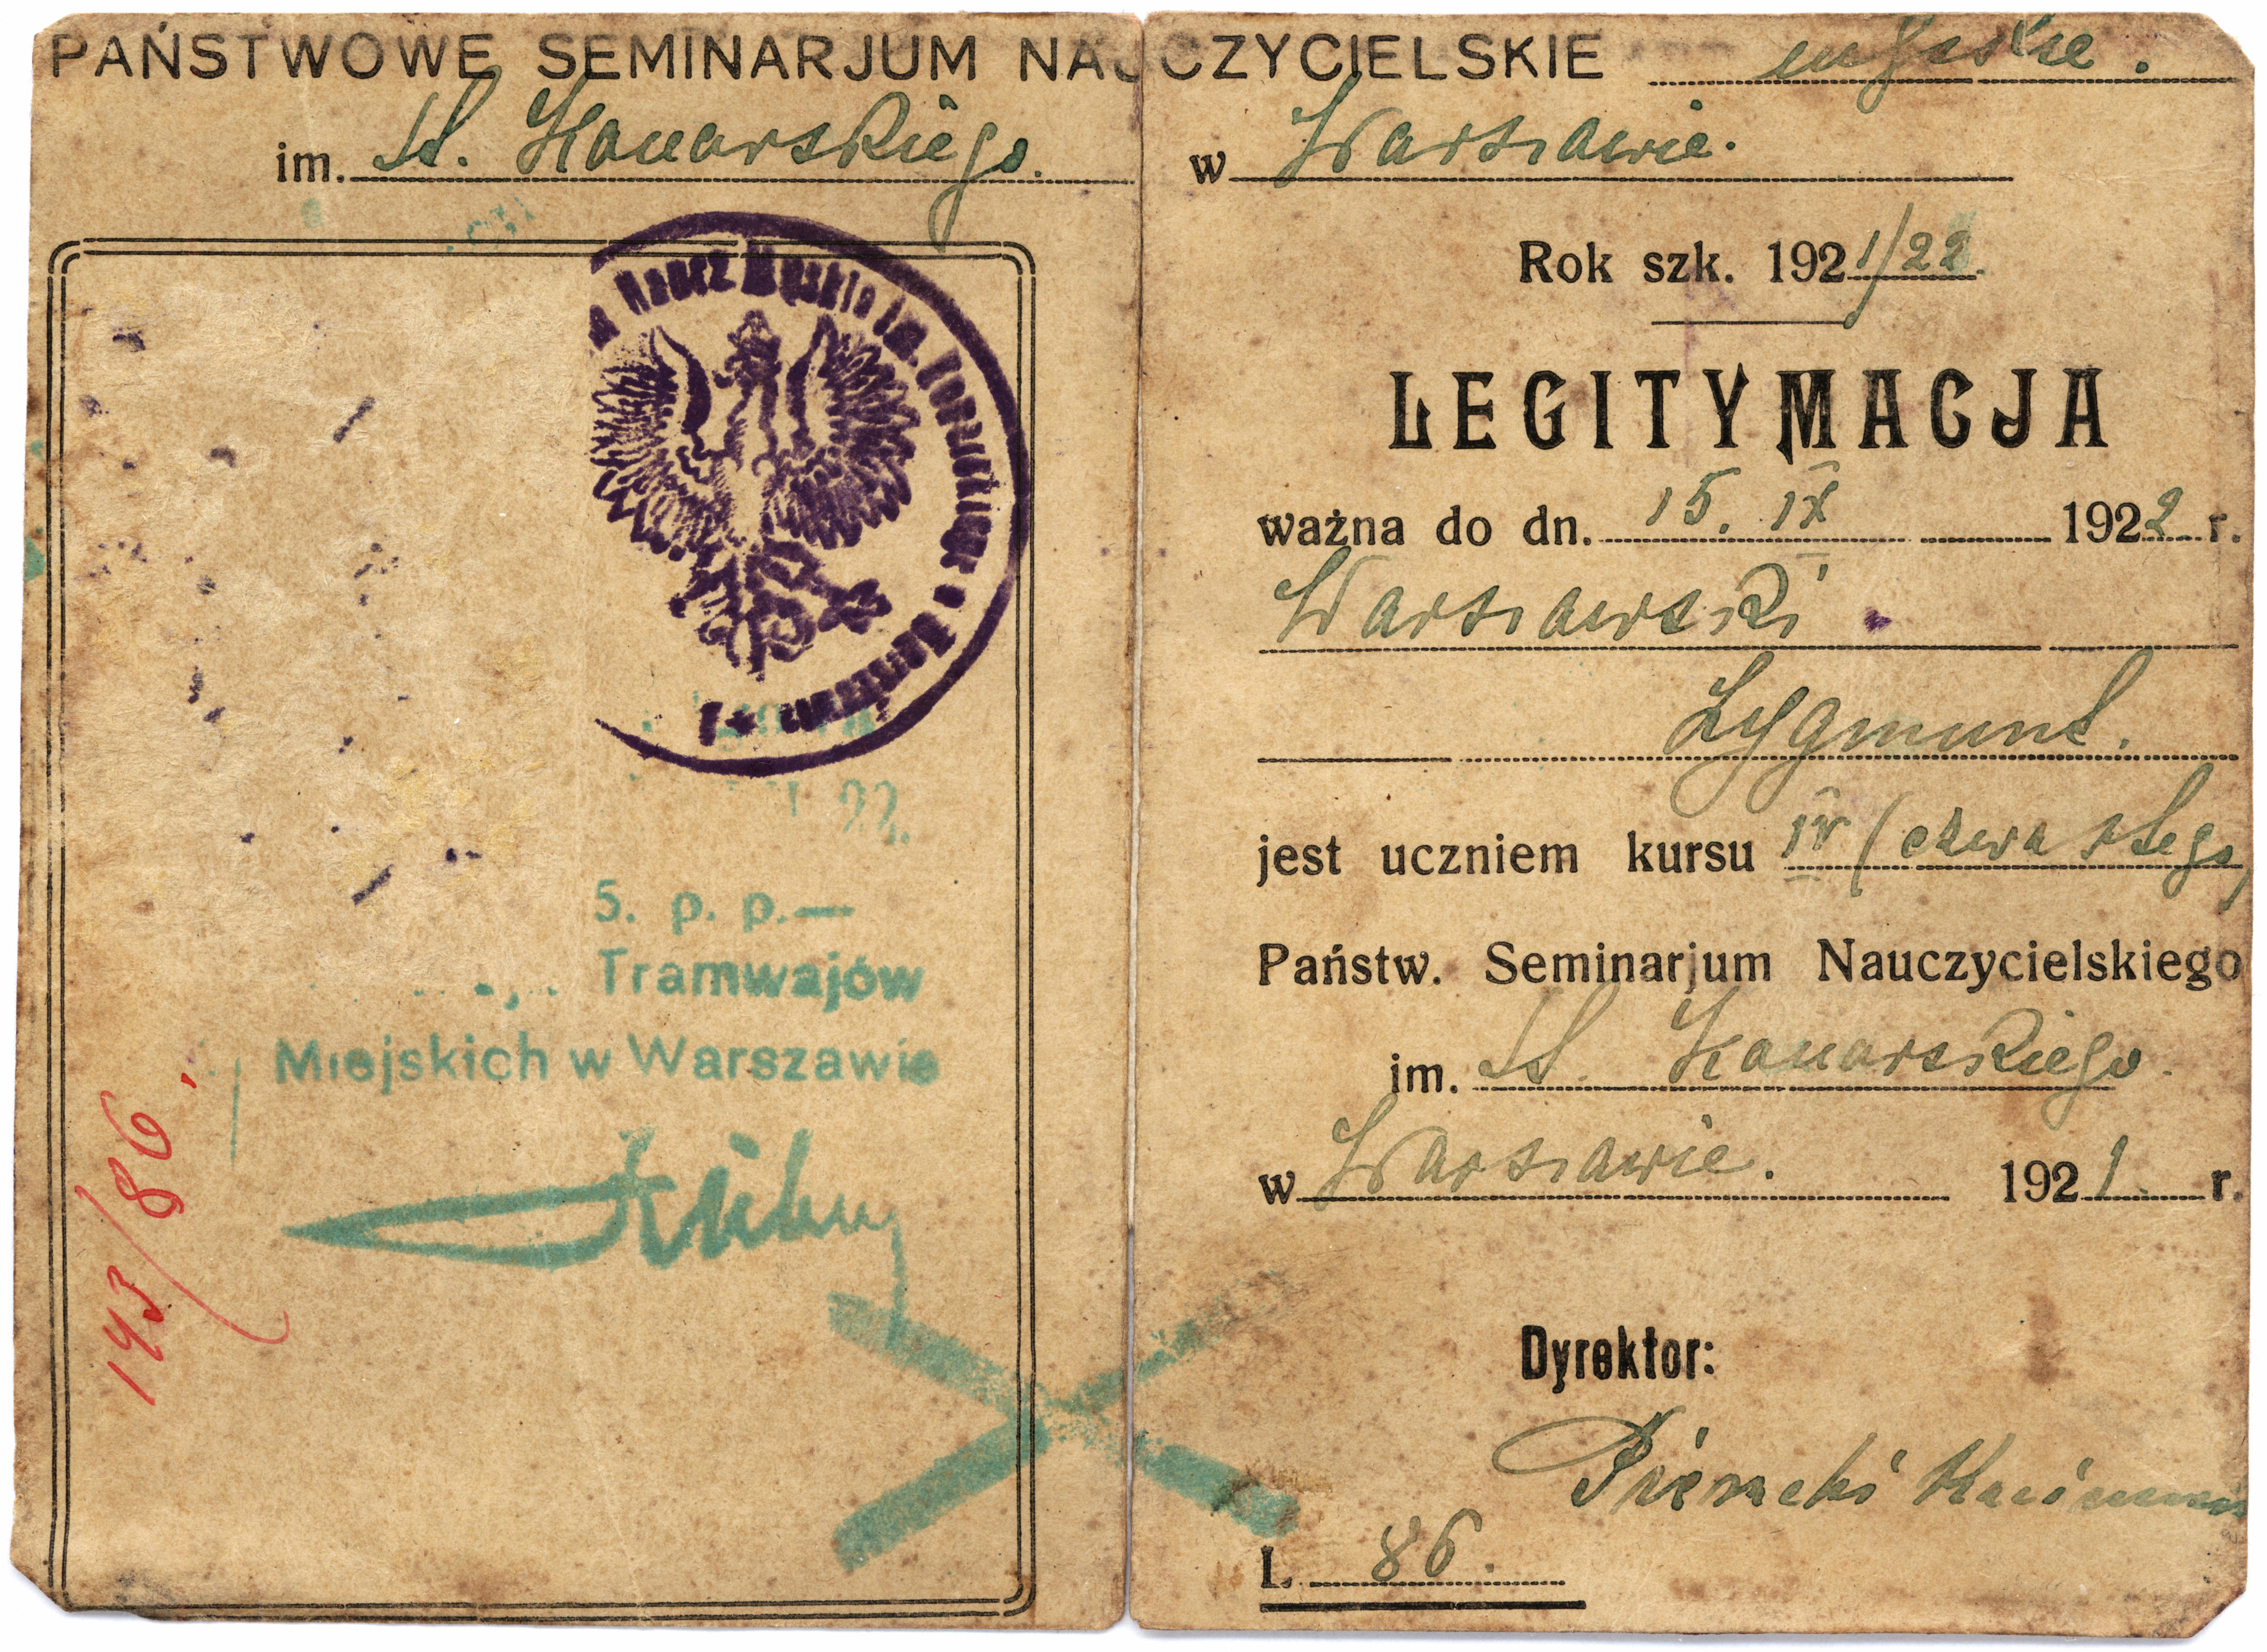 PAŃSTWOWE SEMINARJUM NAUCZYCIELSKIE męskie.
im. St. Konarskiego.
w Warszawie.
Rok szk. 1921/22.
LEGITYMACJA
ważna do dn. 15. IX 1922 r.
Warszawski
Zygmunt.
jest uczniem kursu IV (czwartego)
Państw. Seminarjum Nauczycielskiego
im. St. Konarskiego.
w Warszawie. 1921 r.
Dyrektor:
L. 86.
Naucz Męskie im.
22.
5. p. p.—
Tramwajów
Miejskich w Warszawie
143/86.